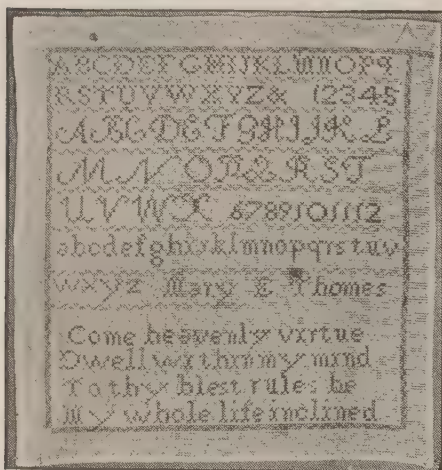 ABCDEFGHIJKLMNOPQ
RSTUVWXYZ& 12345
ABCDEFGHIJKL
MNOPQRST
UVWX 6789101112
abcdefghijklmnopqrstuv
wxyz Mary E Thomes
Come heavenly virtue
Dwell within my mind
To thy blest rules be
My whole life inclined